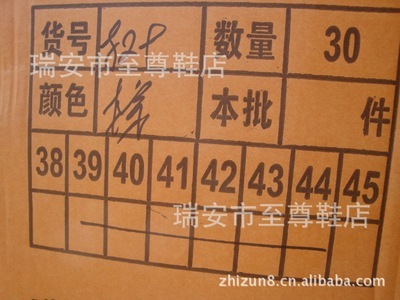 货号 828 数量 30
瑞安市至尊鞋店
颜色 样 本批 件
38 39 40 41 42 43 44 45
瑞安市至尊鞋店
zhizun8.cn.alibaba.com